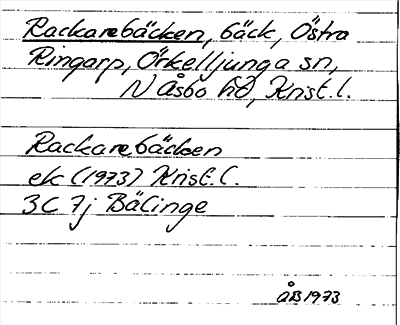 Rackarebäcken, bäck, Östra
Ringarp, Örkelljunga sn,
N Åsbo hd, Krist. l.
Rackarebäcken
ek (1973) Krist. l.
3C 7j Bälinge
ÅB 1973